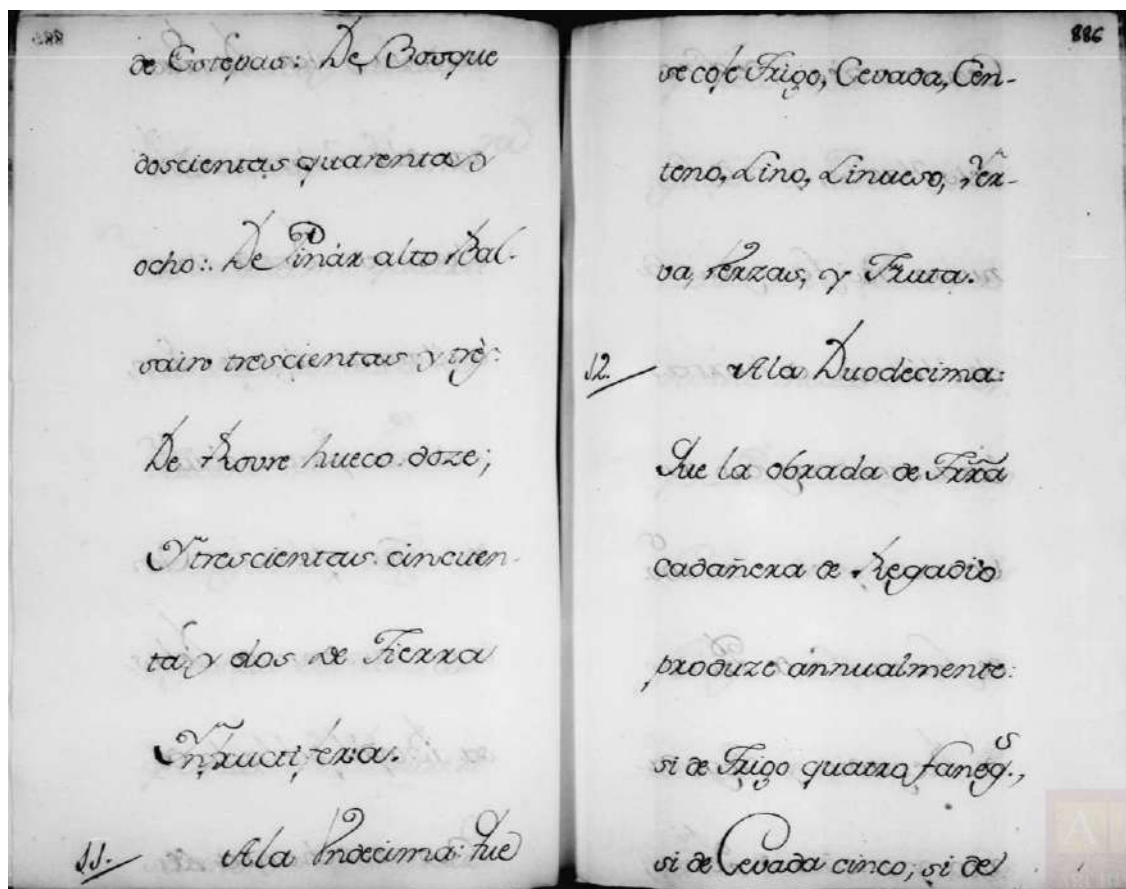 de Estepas: De Bosque
doscientas quarenta y
ocho: De Pinár alto Bal-
sairo trescientas y tres:
De Rovre hueco doze;
Y trescientas cincuen-
ta y dos de Tierra
Ynfructifera.
11. A la Undecima: Que
886
se coje Trigo, Cevada, Cen-
teno, Lino, Linueso, Yer-
va, Berzas, y Fruta.
12. A la Duodecima:
Que la obrada de Trrã
cadañera de Regadio
produze annualmente:
si de Trigo quatro faneg.s,
si de Cevada cinco, si de